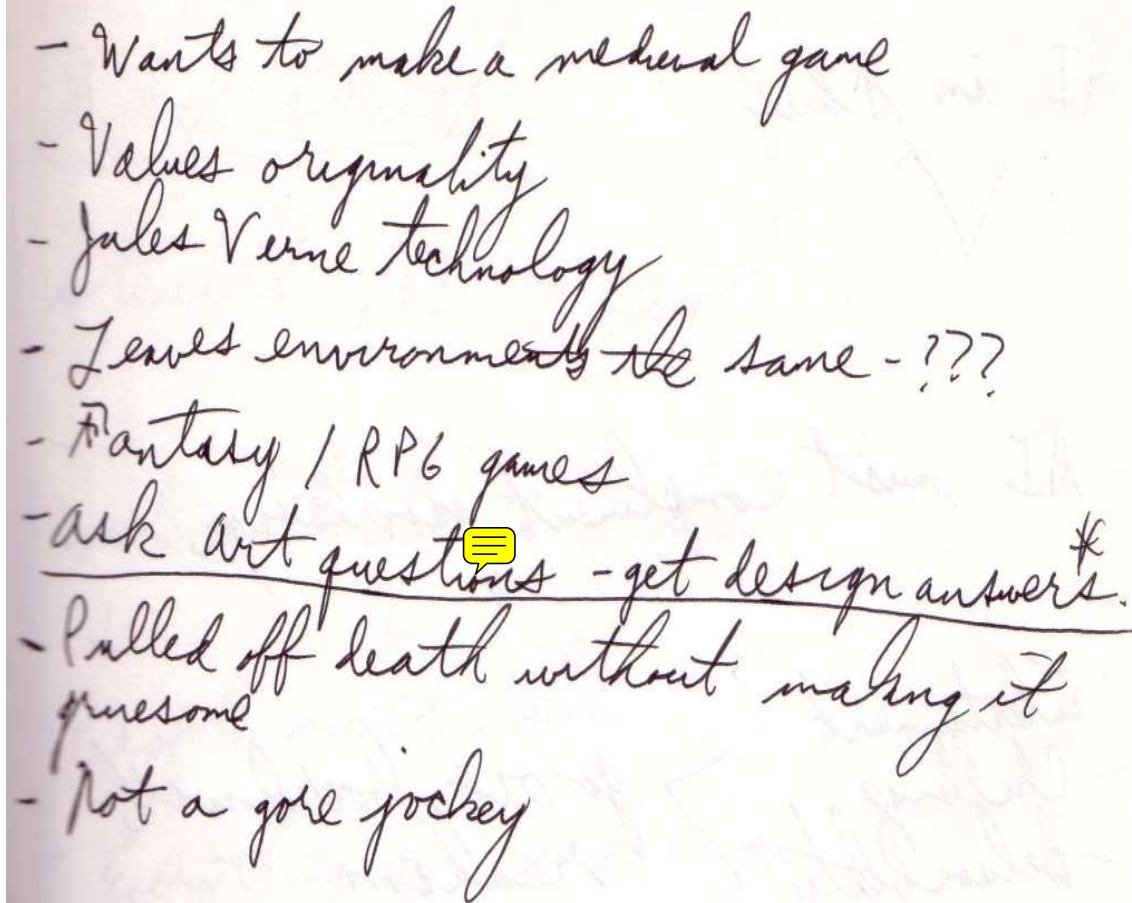 - Wants to make a medieval game
- Values originality
- Jules Verne technology
- Leaves environments the same - ???
- Fantasy / RPG games
- ask art questions - get design answers. *
- Pulled off death without making it
gruesome
- Not a gore jockey